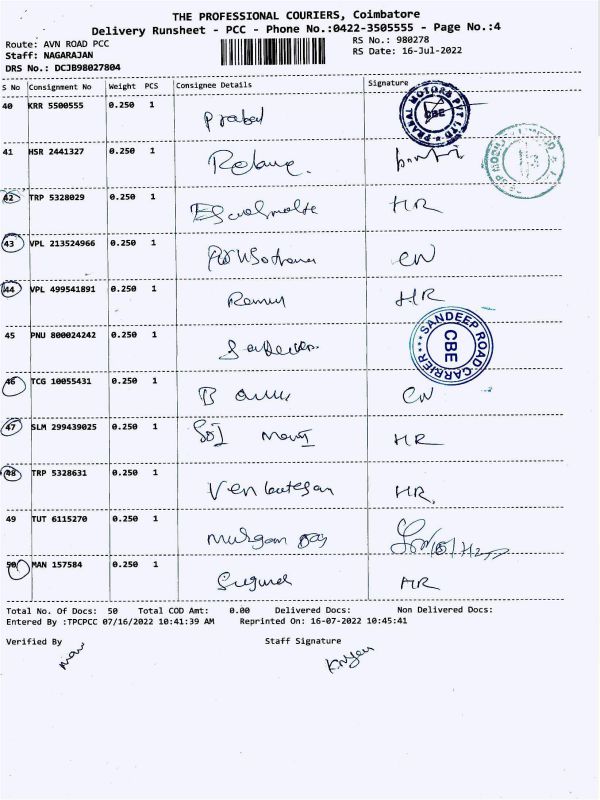 THE PROFESSIONAL COURIERS, Coimbatore
Delivery Runsheet - PCC - Phone No.:0422-3505555 - Page No.:4
Route: AVN ROAD PCC RS No.: 980278
Staff: NAGARAJAN RS Date: 16-Jul-2022
DRS No.: DCJB98027804
S No Consignment No Weight PCS Consignee Details Signature
40 KRR 5500555 0.250 1 Prabal PRAKAL MOTORS PVT LTD CBE
41 HSR 2441327 0.250 1
42 TRP 5328029 0.250 1 HR
43 VPL 213524966 0.250 1 CW
44 VPL 499541891 0.250 1 Ramu HR
45 PNU 800024242 0.250 1 SANDEEP ROAD CARRIER CBE
46 TCG 10055431 0.250 1 CW
47 SLM 299439025 0.250 1 HR
48 TRP 5328631 0.250 1 Venkatesan HR.
49 TUT 6115270 0.250 1 Murgan
50 MAN 157584 0.250 1 HR
Total No. Of Docs: 50 Total COD Amt: 0.00 Delivered Docs: Non Delivered Docs:
Entered By :TPCPCC 07/16/2022 10:41:39 AM Reprinted On: 16-07-2022 10:45:41
Verified By Staff Signature